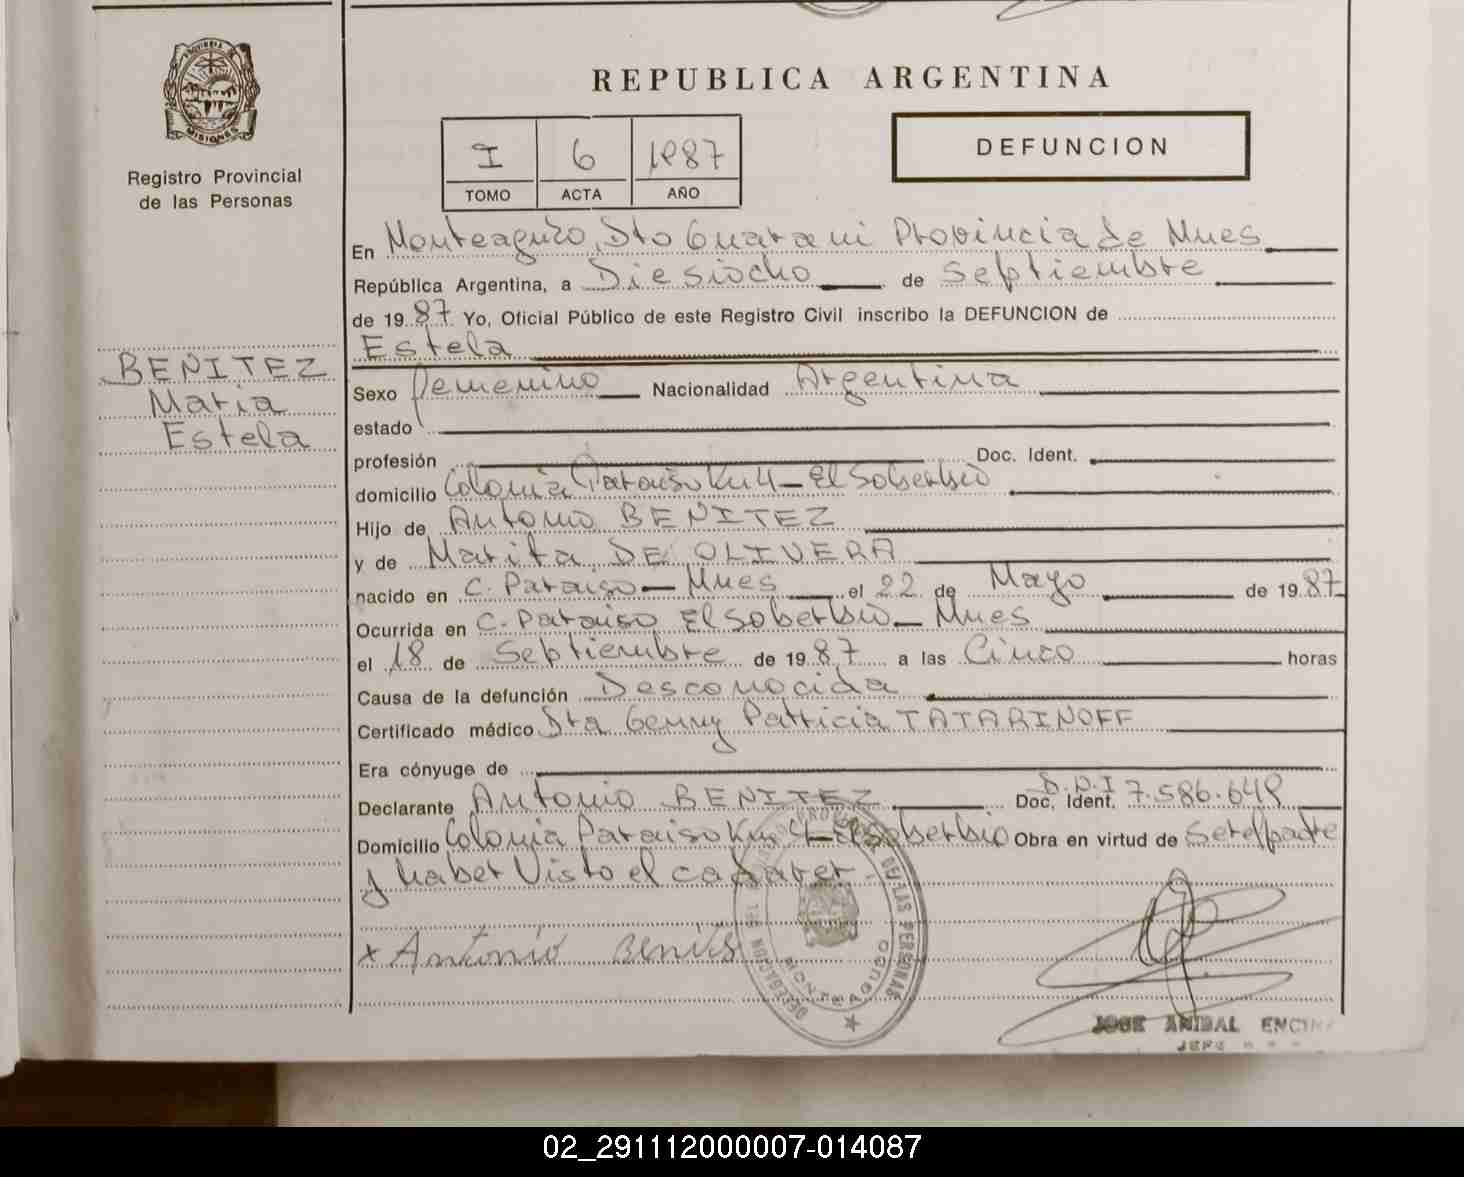 PROVINCIA DE
MISIONES
Registro Provincial
de las Personas
BENITEZ
Maria
Estela
REPUBLICA ARGENTINA
I 6 1987
TOMO ACTA AÑO
DEFUNCION
En Monteagudo, Dto Guarani Provincia de Mnes
República Argentina, a Diesiocho de Septiembre
de 1987 Yo, Oficial Público de este Registro Civil inscribo la DEFUNCION de
Estela
Sexo femenino Nacionalidad Argentina
estado
profesión Doc. Ident.
domicilio Colonia Paraiso Km 4 - El Soberbio
Hijo de Antonio BENITEZ
y de Marita DE OLIVERA
nacido en C. Paraiso - Mnes el 22 de Mayo de 1987
Ocurrida en C. Paraiso El Soberbio - Mnes
el 18 de Septiembre de 1987 a las Cinco horas
Causa de la defunción Desconocida
Certificado médico Dra Genny Patricia TATARINOFF
Era cónyuge de
Declarante Antonio BENITEZ Doc. Ident. D.N.I 7.586.649
Domicilio Colonia Paraiso Km 4 - El Soberbio Obra en virtud de Ser el padre
y haber Visto el cadaver.
x Antonio Benits
DELEGACION DEL REGISTRO PROVINCIAL DE LAS PERSONAS
MONTEAGUDO
JOSE ANIBAL ENCINA
JEFE
02_291112000007-014087